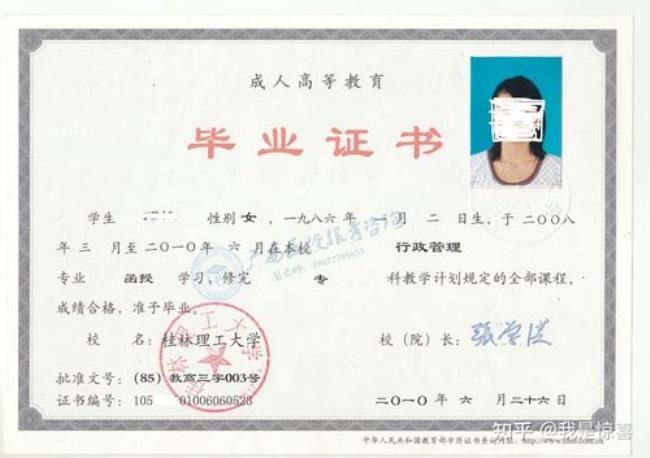 成人高等教育
毕业证书
学生 性别 女，一九八六年 一 月 二 日生，于 二〇〇八
年 三 月至 二〇一〇年 六 月在本校 行政管理
专业 函授 学习，修完 专 科教学计划规定的全部课程，
成绩合格，准予毕业。
校 名：桂林理工大学 校（院）长：
批准文号：(85) 教高三字003号
证书编号：105 01006060523 二〇一〇年 六 月二十六日
桂林理工大学
中华人民共和国教育部学历证书查询网址：http://www.chsi.com.cn
知乎 @我是惊喜